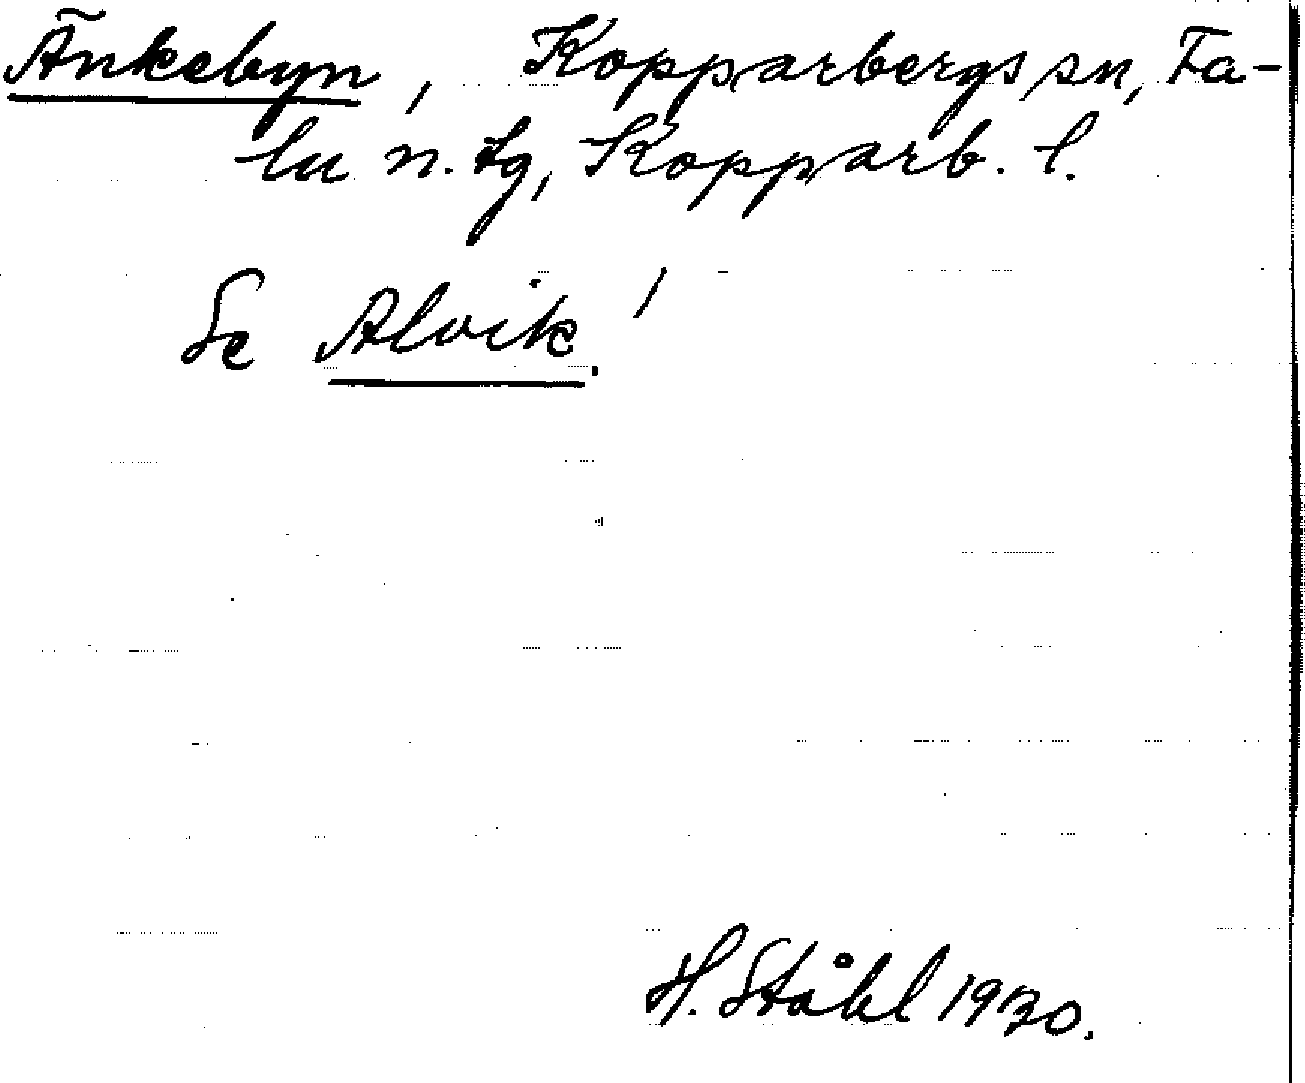 Änkebyn, Kopparbergs sn, Fa-
lu n. tg, Kopparb. l.
Se Alvik!
H. Ståhl 1930.